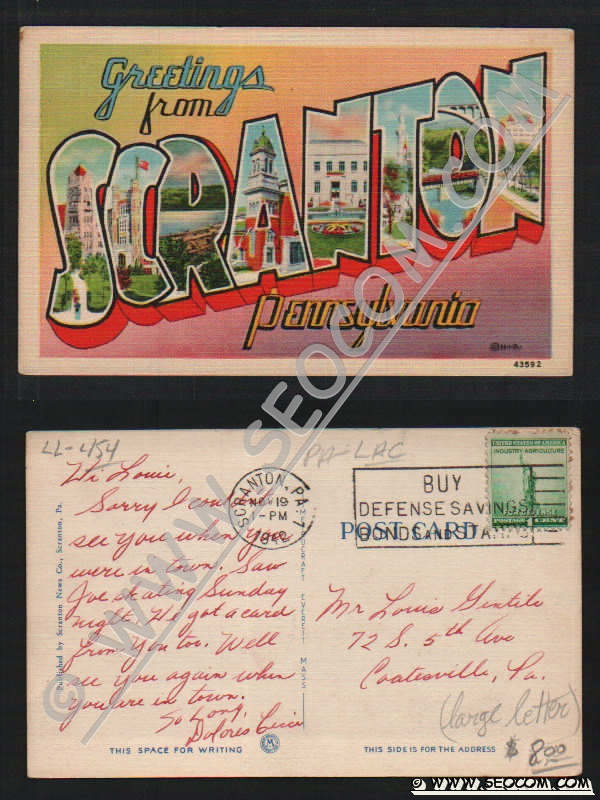 Greetings
from
SCRANTON
Pennsylvania
43592
LL-454
PA-LAC
Hi Louie,
Sorry I couldn't
see you when you
were in town. Saw
Joe skating Sunday
night. We got a card
from you too. Well
see you again when
you're in town.
So Long,
Dolores
THIS SPACE FOR WRITING
Published by Scranton News Co., Scranton, Pa.
EVERETT MASS.
SCRANTON, PA. 7
NOV 19
1-PM
BUY
DEFENSE SAVINGS
BONDS AND STAMPS
UNITED STATES OF AMERICA
INDUSTRY AGRICULTURE
FOR DEFENSE
POSTAGE 1 CENT
POST CARD
Mr Louis Gentile
72 S. 5th Ave
Coatesville, Pa.
(large letter)
$ 8.00
THIS SIDE IS FOR THE ADDRESS
© WWW.SEOCOM.COM
© WWW.SEOCOM.COM